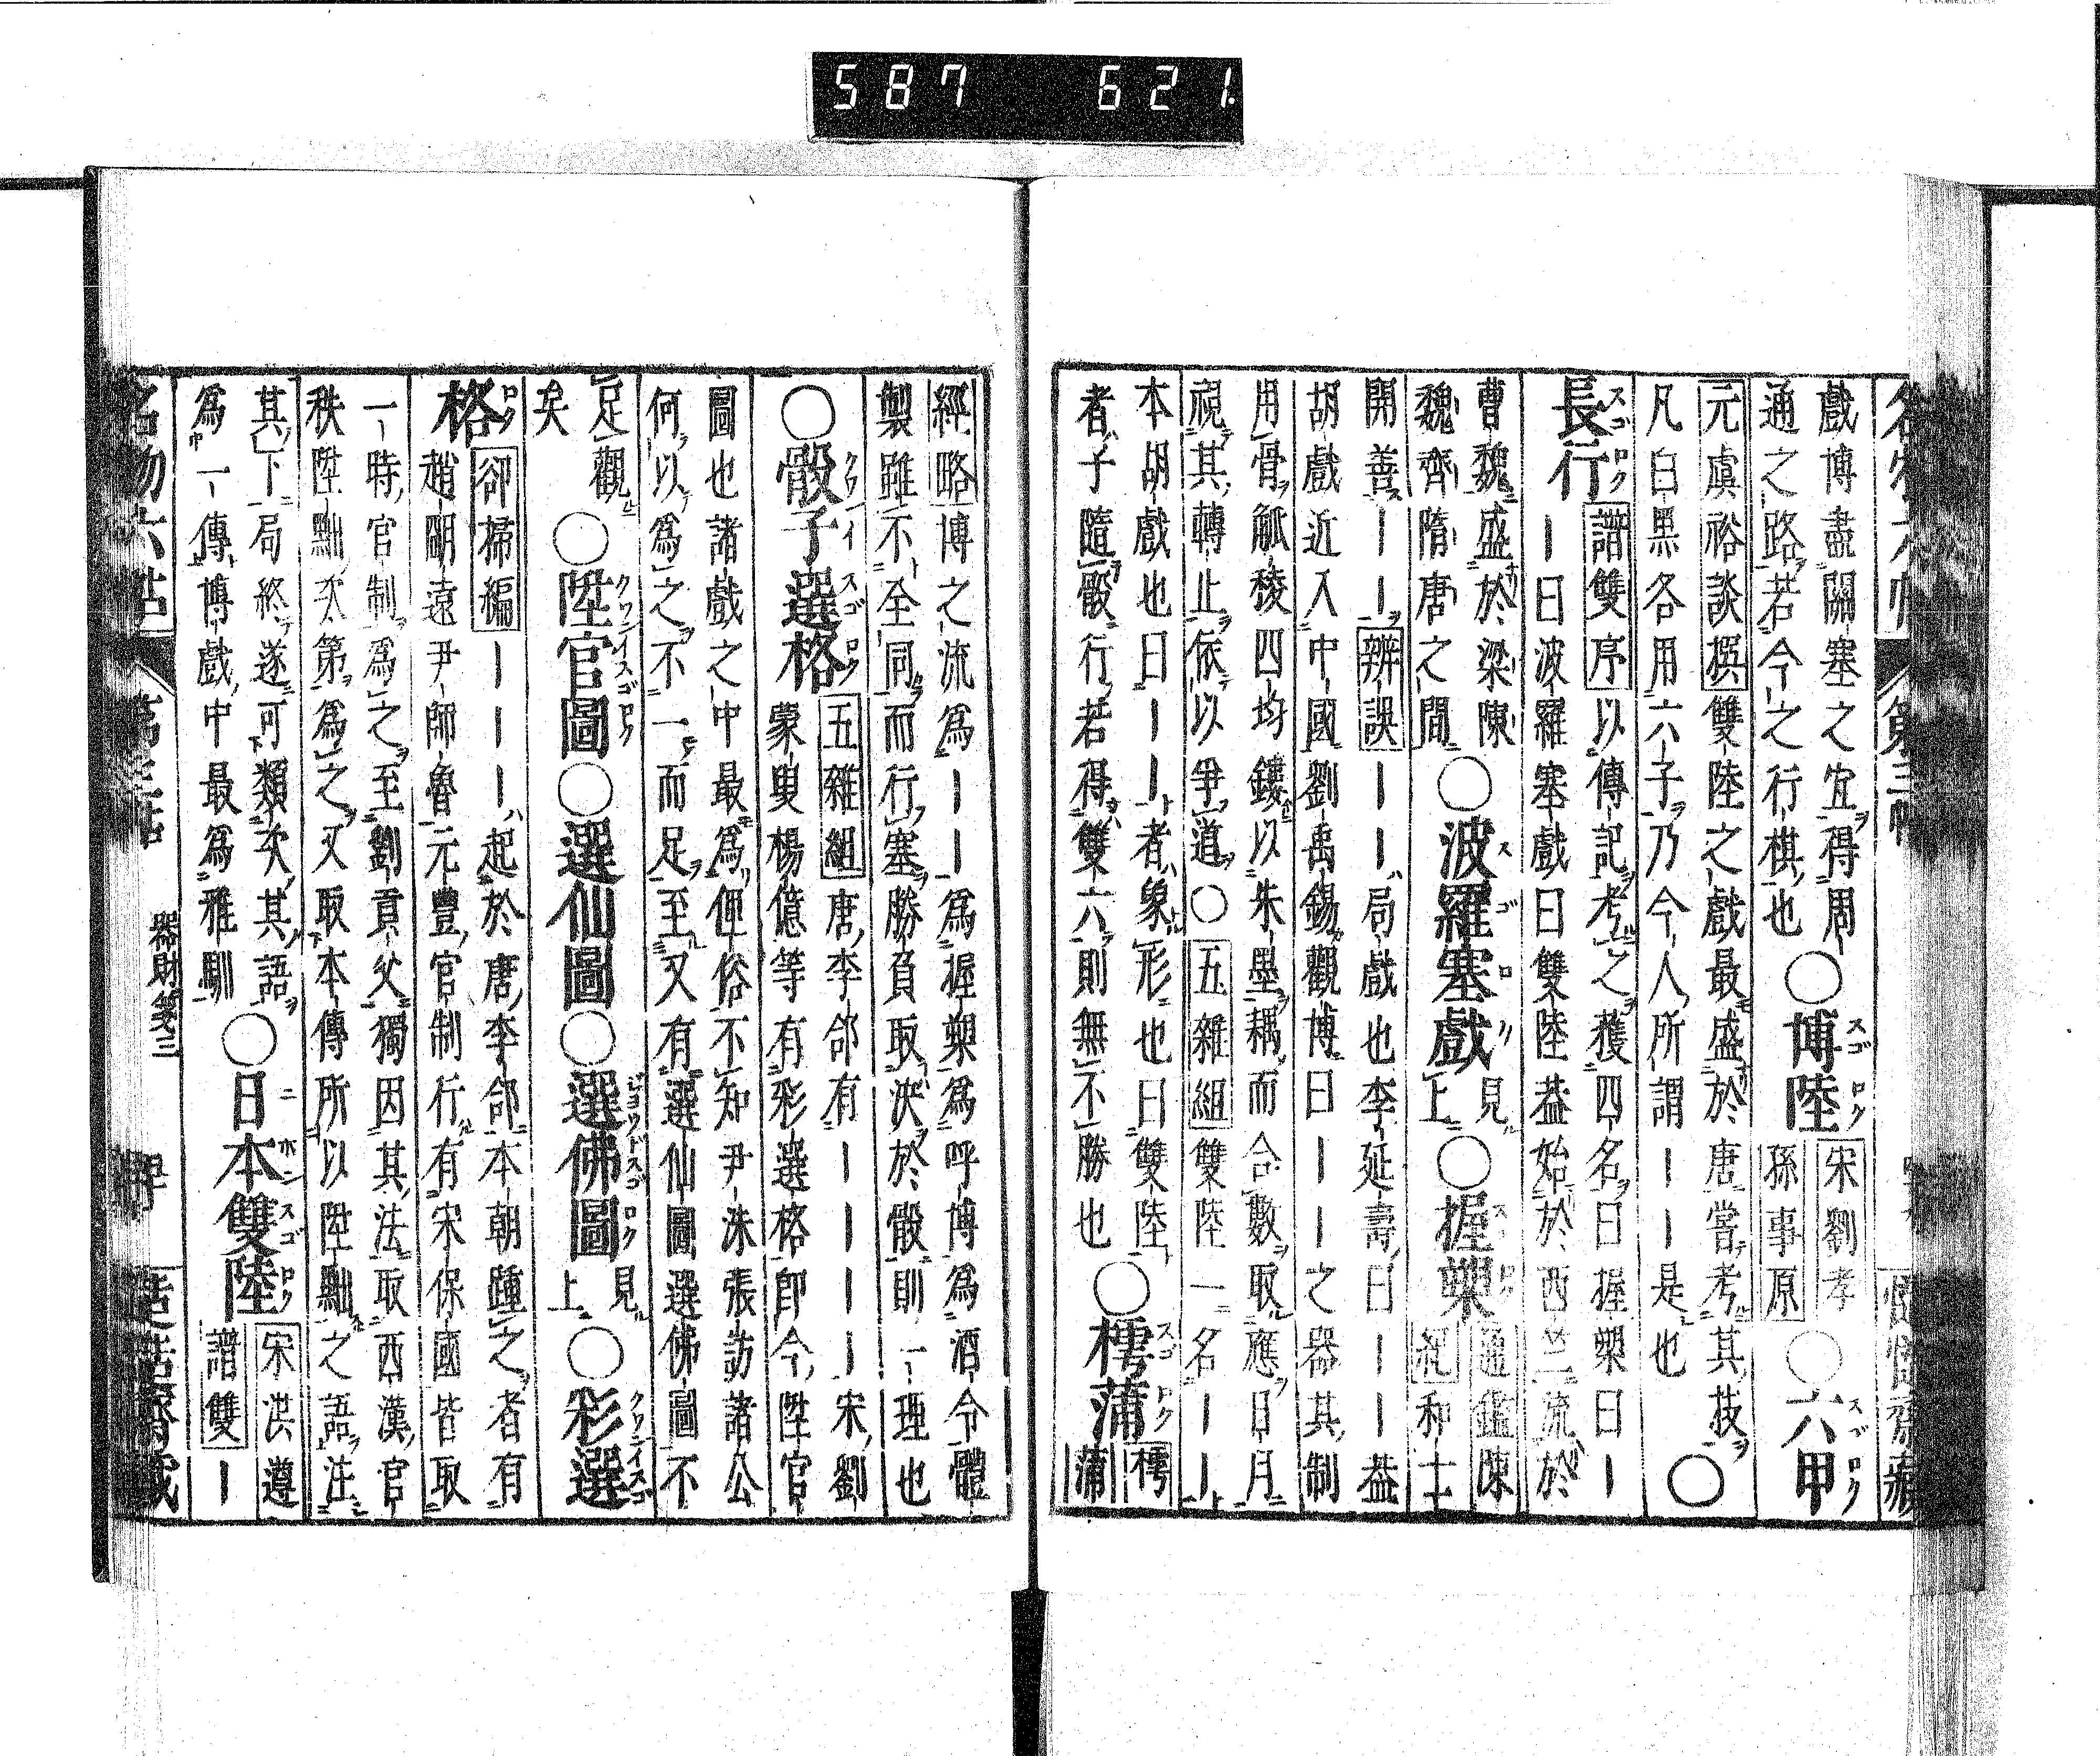 戲博盡關塞之宜得周
通之路若今之行棋也
○博陸
宋劉孝
孫事原
○六甲
元虞裕談撰雙陸之戲最盛於唐嘗考其技
凡白黒各用六子乃今人所謂——是也
○
長行
譜雙序以傳記考之獲四名曰握槊曰—
—曰波羅塞戲曰雙陸葢始於西竺流於
曹魏盛於梁陳
魏齊隋唐之間
○波羅塞戲
見
上
○握槊
通鑑陳
紀和士
開善——辨誤——局戲也李延壽曰——葢
胡戲近入中國劉禹錫觀博曰——之器其制
用骨觚稜四均鏤以朱墨耦而合數取應日月
視其轉止依以爭道○五雜組雙陸一名——
本胡戲也曰——者象形也曰雙陸
者子隨骰行若得雙六則無不勝也
○樗蒲
樗
蒲
經略博之流為——為握槊為呼博為酒令體
製雖不全同而行塞勝負取決於骰則一理也
○骰子選格
五雜組唐李郃有————宋劉
蒙叟楊億等有彩選格即今陞官
圖也諸戲之中最為俚俗不知尹洙張訪諸公
何以為之不一而足至又有選仙圖選佛圖不
足觀
矣
○陞官圖○選仙圖○選佛圖
見
上
○彩選
格
卻掃編———起於唐李郃本朝踵之者有
趙明遠尹師魯元豐官制行有宋保國皆取
一時官制為之至劉貢父獨因其法取西漢官
秩陞黜次第為之又取本傳所以陞黜之語注
其下局終遂可類次其語
為一傳博戲中最為雅馴
○日本雙陸
宋洪遵
譜雙—
名物六帖
器財箋三
587 621.